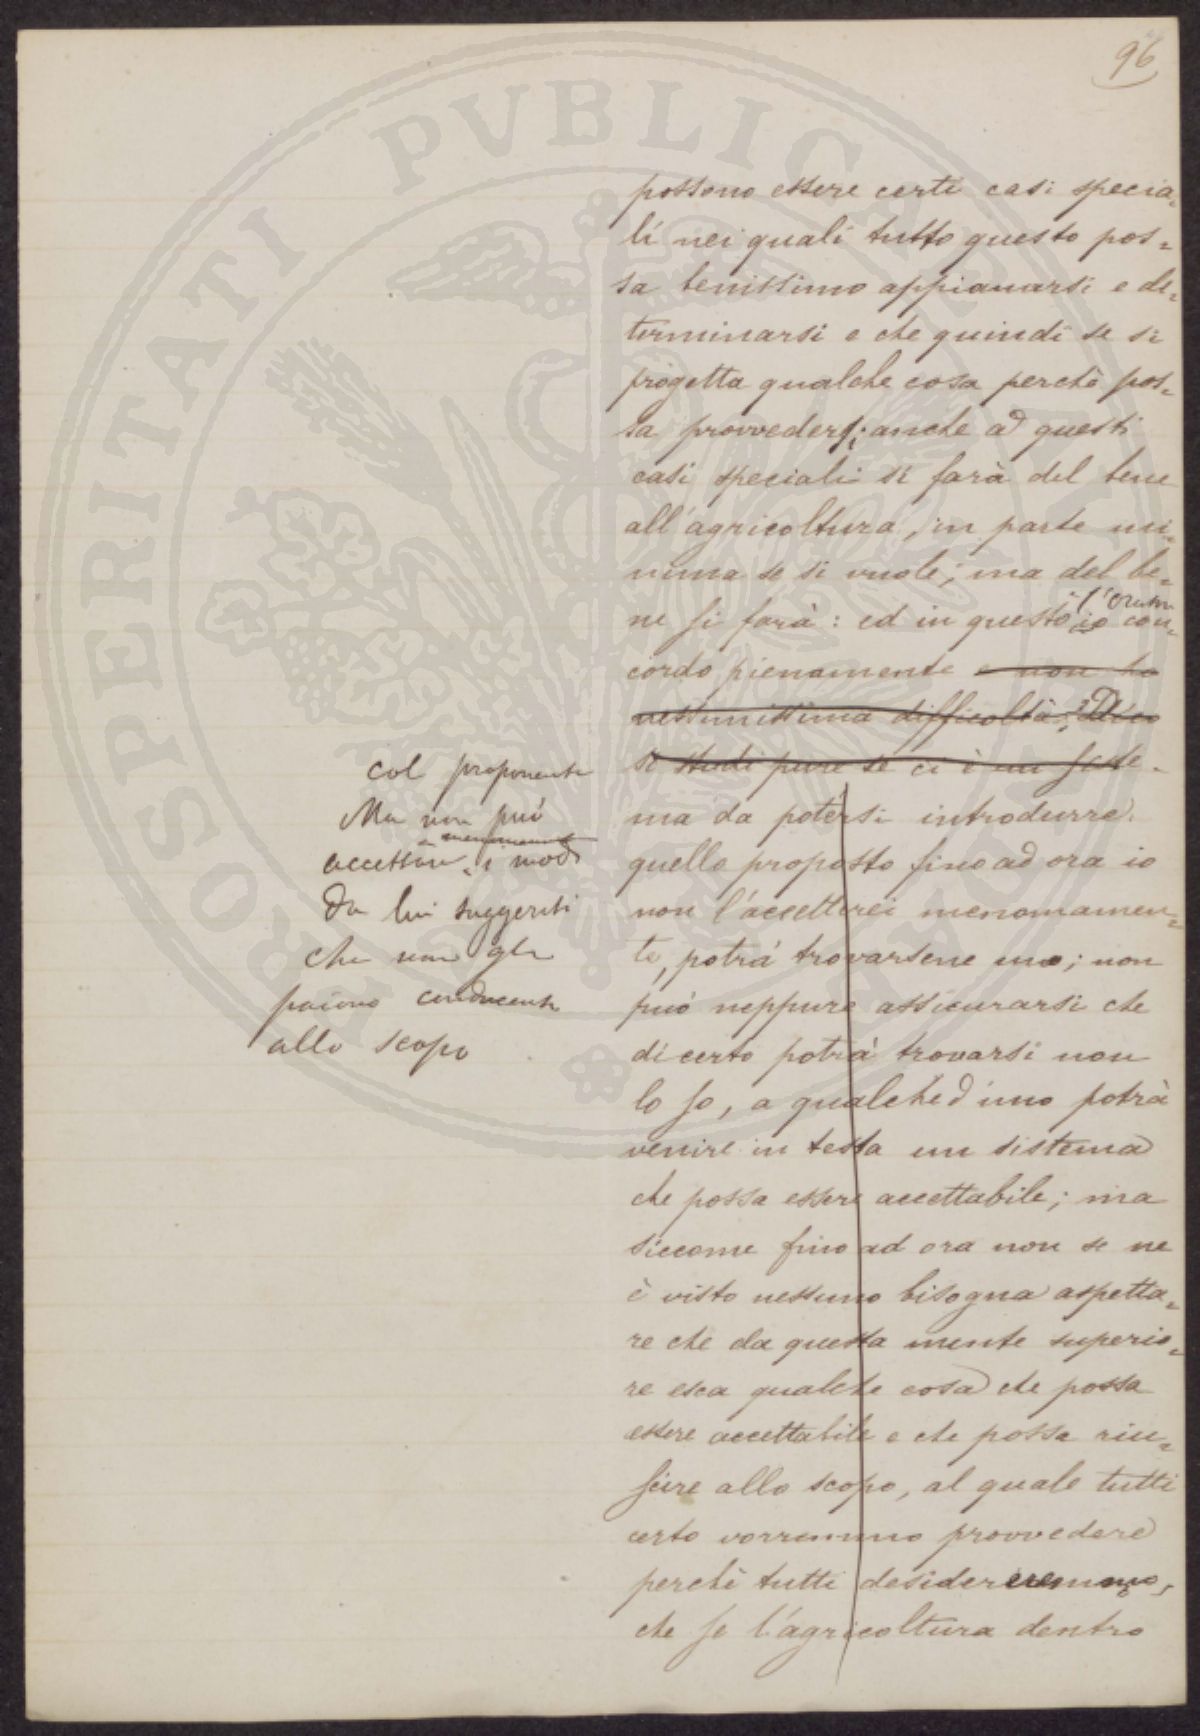 96
possono essere certi casi specia=
li nei quali tutto questo pos=
sa benissimo appianarsi e de=
terminarsi e che quindi se si
progetta qualche cosa perchè pos=
sa provvedersi anche ad questi
casi speciali si farà del bene
all'agricoltura, in parte mi=
nima se si vuole; ma del be=
ne si farà: ed in questo io con=
cordo pienamente e non ho
nessunissima difficoltà; Dico
si studi pure se ci è un siste=
ma da potersi introdurre
quello proposto fino ad ora io
non l'accetterei menomamen=
te, potrà trovarsene uno; non
può neppure assicurarsi che
di certo potrà trovarsi non
lo so, a qualched'uno potrà
venire in testa un sistema
che possa essere accettabile; ma
siccome fino ad ora non se ne
è visto nessuno bisogna aspetta=
re che da questa mente superio=
re esca qualche cosa che possa
essere accettabile e che possa riu=
scire allo scopo, al quale tutti
certo vorremmo provvedere
perchè tutti desidereremmo,
che se l'agricoltura dentro
col proponente
Ma non può
accettare i modi
da lui suggeriti
che non gli
paiono conducenti
allo scopo
PROSPERITATI PUBLICAE